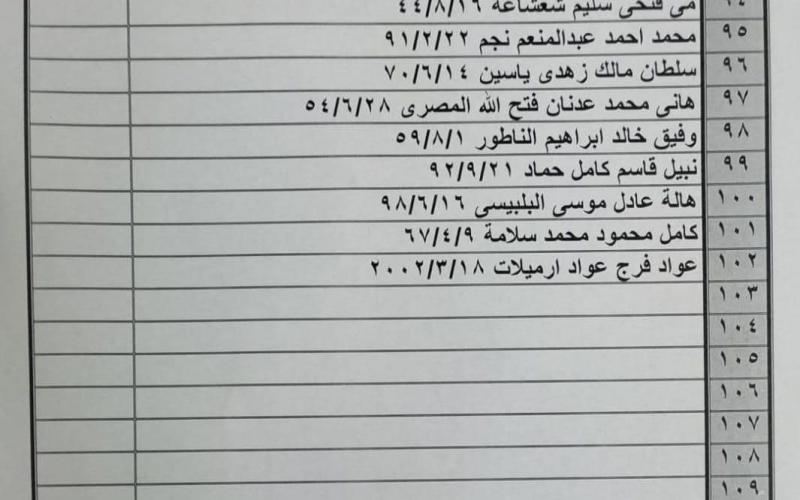 ٩٤ مى فتحى سليم شعشاعة ٤٤/٨/١٦
٩٥ محمد احمد عبدالمنعم نجم ٩١/٢/٢٢
٩٦ سلطان مالك زهدى ياسين ٧٠/٦/١٤
٩٧ هانى محمد عدنان فتح الله المصرى ٥٤/٦/٢٨
٩٨ وفيق خالد ابراهيم الناطور ٥٩/٨/١
٩٩ نبيل قاسم كامل حماد ٩٢/٩/٢١
١٠٠ هالة عادل موسى البلبيسى ٩٨/٦/١٦
١٠١ كامل محمود محمد سلامة ٦٧/٤/٩
١٠٢ عواد فرج عواد ارميلات ٢٠٠٢/٣/١٨
١٠٣
١٠٤
١٠٥
١٠٦
١٠٧
١٠٨
١٠٩